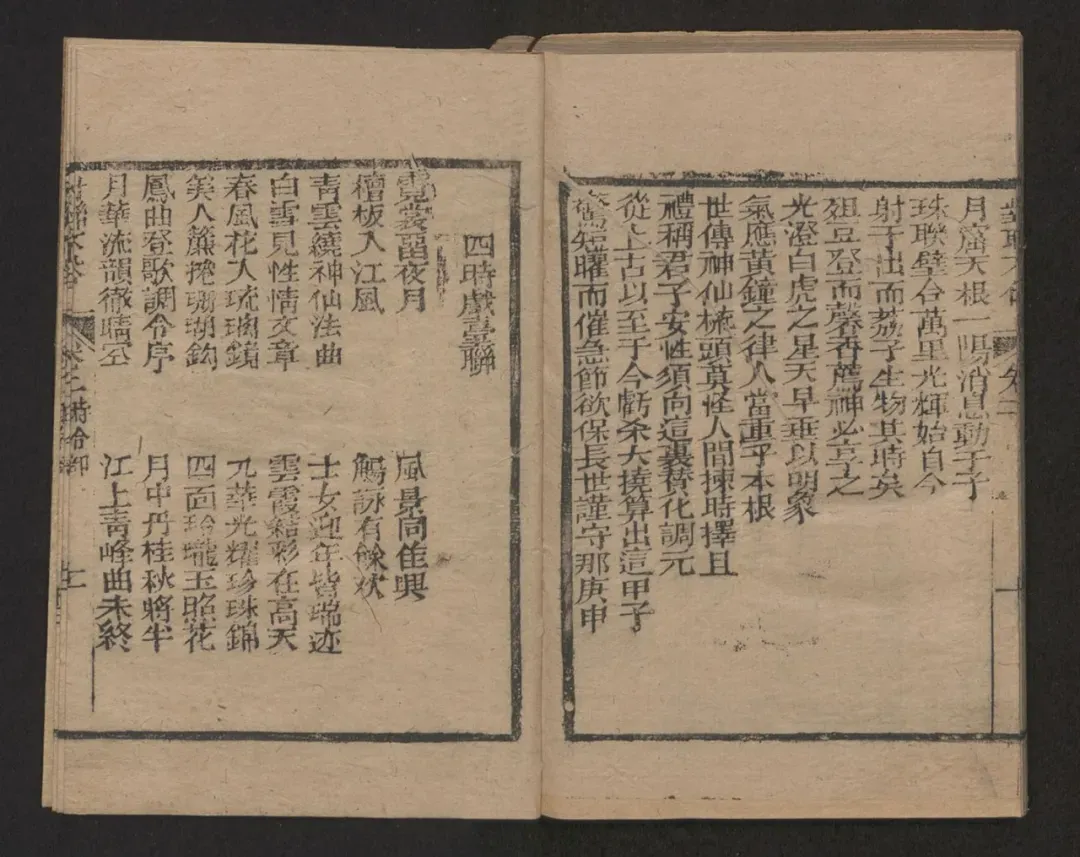 月窟天根一陽消息動于子
珠聯璧合萬里光輝始自今
射子出而荔子生物其時矣
俎豆登而馨香薦神必享之
光澄白虎之星天早垂以明象
氣應黃鐘之律人當重乎本根
世傳神仙梳頭莫怪人間揀時擇且
禮稱君子安性須向這裏贊化調元
從上古以至于今虧杀大撓算出這甲子
驚短曜而催急節欲保長世謹守那庚申
十
四時戲臺聯
霓裳留夜月
風景同佳興
檀板入江風
觴詠有餘欢
青雲繞神仙法曲
士女迎年皆瑞迹
白雪見性情文章
雲霞結彩在高天
春風花入琉璃鏡
九華光耀珍珠錦
美人簾捲珊瑚鈎
四面玲瓏玉照花
鳳曲登歌調令序
月中丹桂秋將半
月華流韻徹晴空
江上青峰曲未終
卷二 時令部